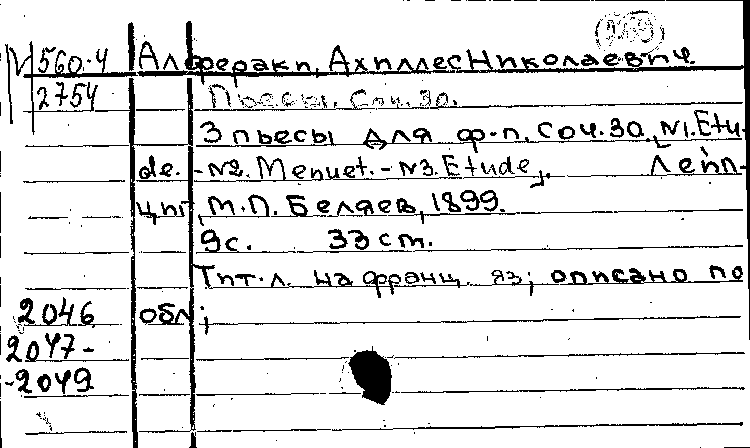 И 560-4 Алфераки, Ахиллес Николаевич
2754 Пьесы. Соч. 30.
3 пьесы для ф-п. Соч. 30. N1. Etu-
de. - N2. Menuet. - N3. Etude. Лейп-
циг, М.П. Беляев, 1899.
9с. 33 cm.
Тит. л. на франц. яз; описано по
2046 обл;
2047-
-2049